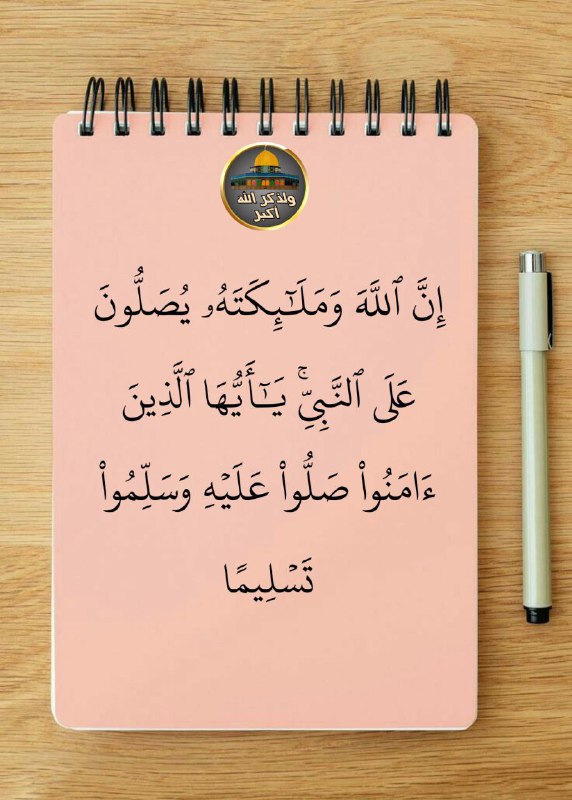 ولذكر الله
أكبر
إِنَّ ٱللَّهَ وَمَلَـٰٓئِكَتَهُۥ يُصَلُّونَ
عَلَى ٱلنَّبِىِّۚ يَـٰٓأَيُّهَا ٱلَّذِينَ
ءَامَنُوا۟ صَلُّوا۟ عَلَيْهِ وَسَلِّمُوا۟
تَسْلِيمًا